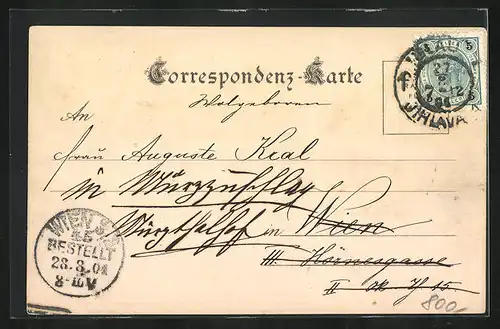 Correspondenz-Karte
5
JIHLAVA
Wolgeboren
An
Frau Auguste Keal
in Mürzzuschlag
Mürzthalhof in Wien
III. Hörnesgasse
II. 15.
WIEN
BESTELLT
28.8.01
800